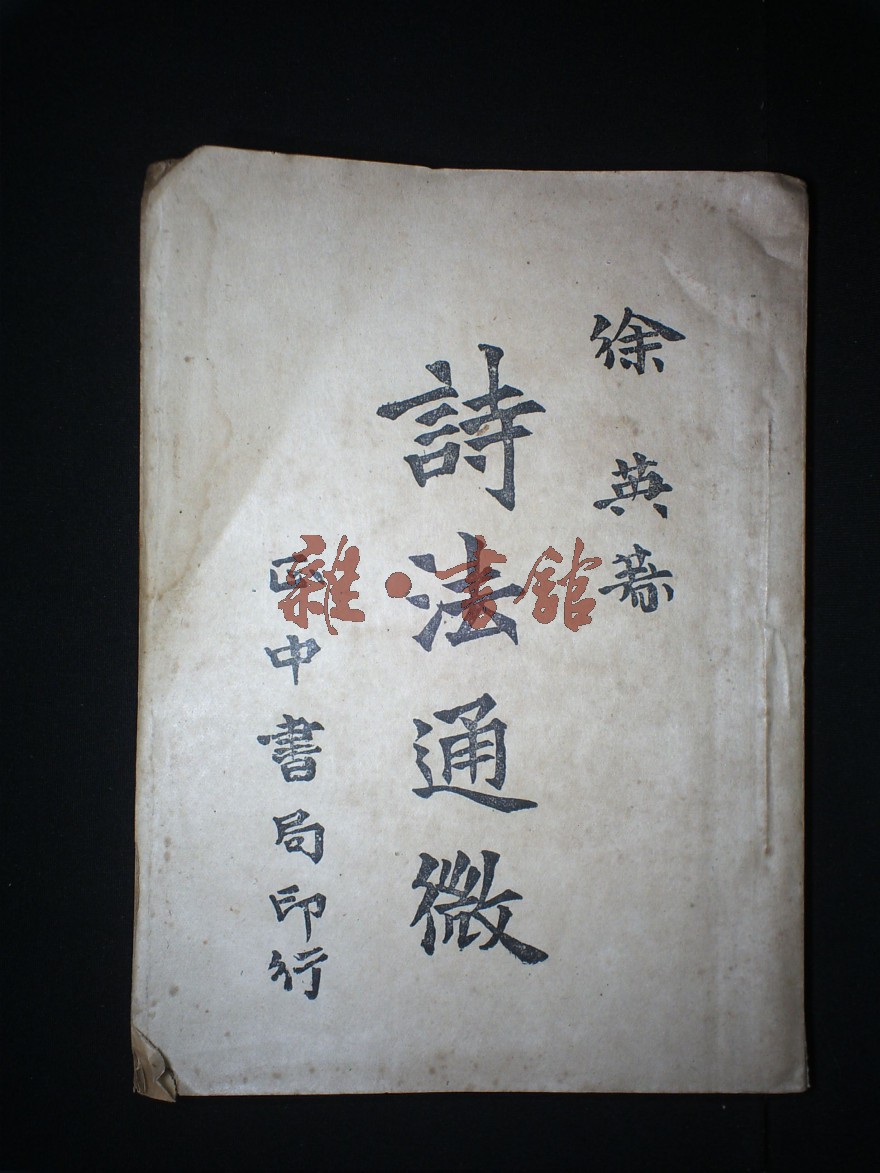 徐英著
詩法通微
正中書局印行
雜·書館